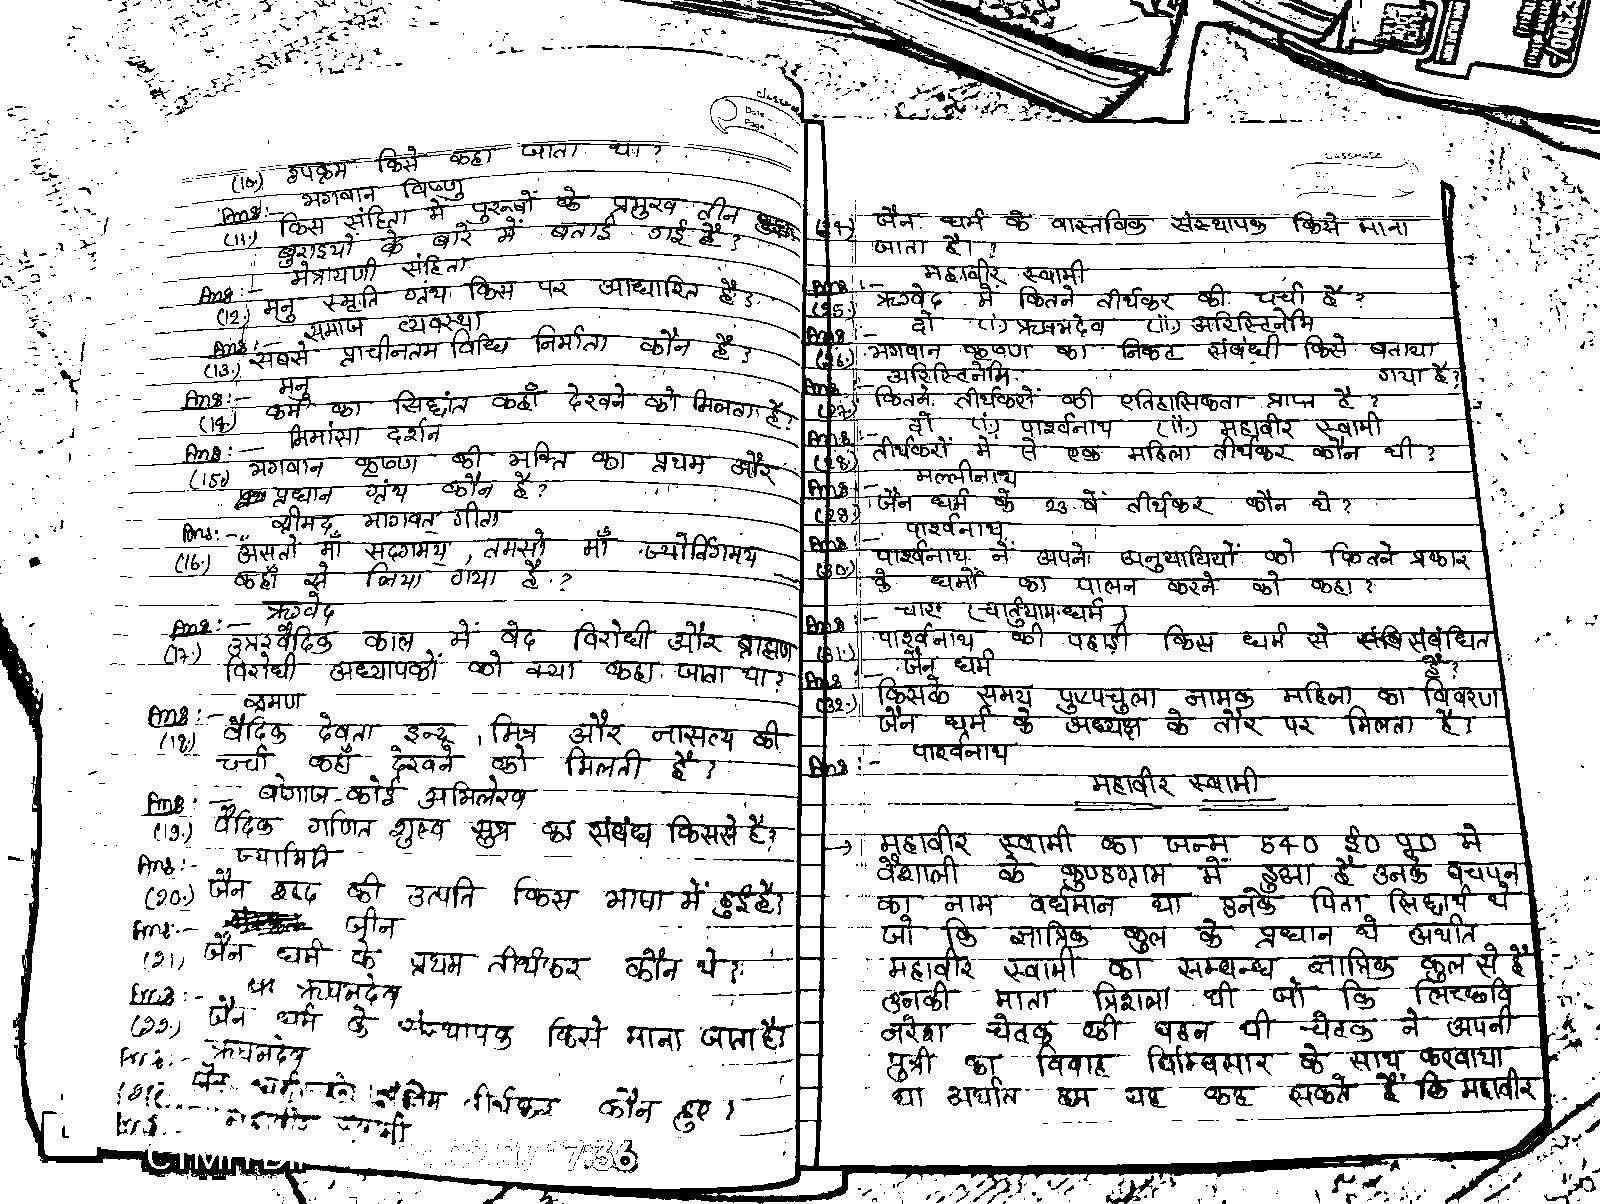 (10.) उपक्रम किसे कहा जाता था?
Ans:- भगवान विष्णु
(11.) किस संहिता में पुरूषों के प्रमुख तीन
बुराइयों के बारे में बताई गई है?
Ans:- मैत्रायणी संहिता
(12.) मनु स्मृति ग्रंथ किस पर आधारित है?
Ans:- समाज व्यवस्था
(13.) सबसे प्राचीनतम विधि निर्माता कौन है?
Ans:- मनु
(14.) कर्म का सिद्धांत कहाँ देखने को मिलता है?
Ans:- मिमांसा दर्शन
(15.) भगवान कृष्ण की भक्ति का प्रथम और
प्रधान ग्रंथ कौन है?
Ans:- श्रीमद् भागवत गीता
(16.) असतो माँ सद्गमय, तमसो माँ ज्योर्तिगमय
कहाँ से लिया गया है?
Ans:- ऋग्वेद
(17.) उत्तरवैदिक काल में वेद विरोधी और ब्राह्मण
विरोधी अध्यापकों को क्या कहा जाता था?
Ans:- श्रमण
(18.) वैदिक देवता इन्द्र, मित्र और नासत्य की
चर्चा कहाँ देखने को मिलती है?
Ans:- बोगाज-कोई अभिलेख
(19.) वैदिक गणित शुल्व सूत्र का संबंध किससे है?
Ans:- ज्यामिति
(20.) जैन शब्द की उत्पति किस भाषा में हुई है?
Ans:- जीन
(21) जैन धर्म के प्रथम तीर्थकर कौन थे?
Ans:- ऋषभदेव
(22.) जैन धर्म के संस्थापक किसे माना जाता है?
Ans:- ऋषभदेव
जैन धर्म के अंतिम तीर्थकर कौन हुए?
महावीर स्वामी
(24.) जैन धर्म के वास्तविक संस्थापक किसे माना
जाता है?
Ans:- महावीर स्वामी
(25.) ऋग्वेद में कितने तीर्थकर की चर्चा है?
Ans:- दो (i.) ऋषभदेव (ii.) अरिस्टिनेमि
(26.) भगवान कृष्ण का निकट संबंधी किसे बताया
गया है?
Ans:- अरिस्टिनेमि
(27.) कितने तीर्थकरों की एतिहासिकता प्राप्त है?
Ans:- दो (i.) पार्श्वनाथ (ii.) महावीर स्वामी
(28.) तीर्थकरों में से एक महिला तीर्थकर कौन थी?
Ans:- मल्लीनाथ
(29.) जैन धर्म के 23 वें तीर्थकर कौन थे?
Ans:- पार्श्वनाथ
(30.) पार्श्वनाथ ने अपने अनुयायियों को कितने प्रकार
के धर्मों का पालन करने को कहा?
Ans:- चार (चार्तुयाम धर्म)
(31.) पार्श्वनाथ की पहाड़ी किस धर्म से संबंधित
है?
Ans:- जैन धर्म
(32.) किसके समय पुष्पचुला नामक महिला का विवरण
जैन धर्म के अध्यक्ष के तौर पर मिलता है?
Ans:- पार्श्वनाथ
महावीर स्वामी
→ महावीर स्वामी का जन्म 540 ई० पू० में
वैशाली के कुण्डग्राम में हुआ है उनके बचपन
का नाम वर्धमान था उनके पिता सिद्धार्थ थे
जो कि ज्ञात्रिक कुल के प्रधान थे अर्थात
महावीर स्वामी का सम्बन्ध ज्ञात्रिक कुल से है
उनकी माता त्रिशला थी जो कि लिच्छवि
नरेश चेटक की बहन थी चेटक ने अपनी
पुत्री का विवाह बिम्बिसार के साथ करवाया
था अर्थात हम यह कह सकते हैं कि महावीर